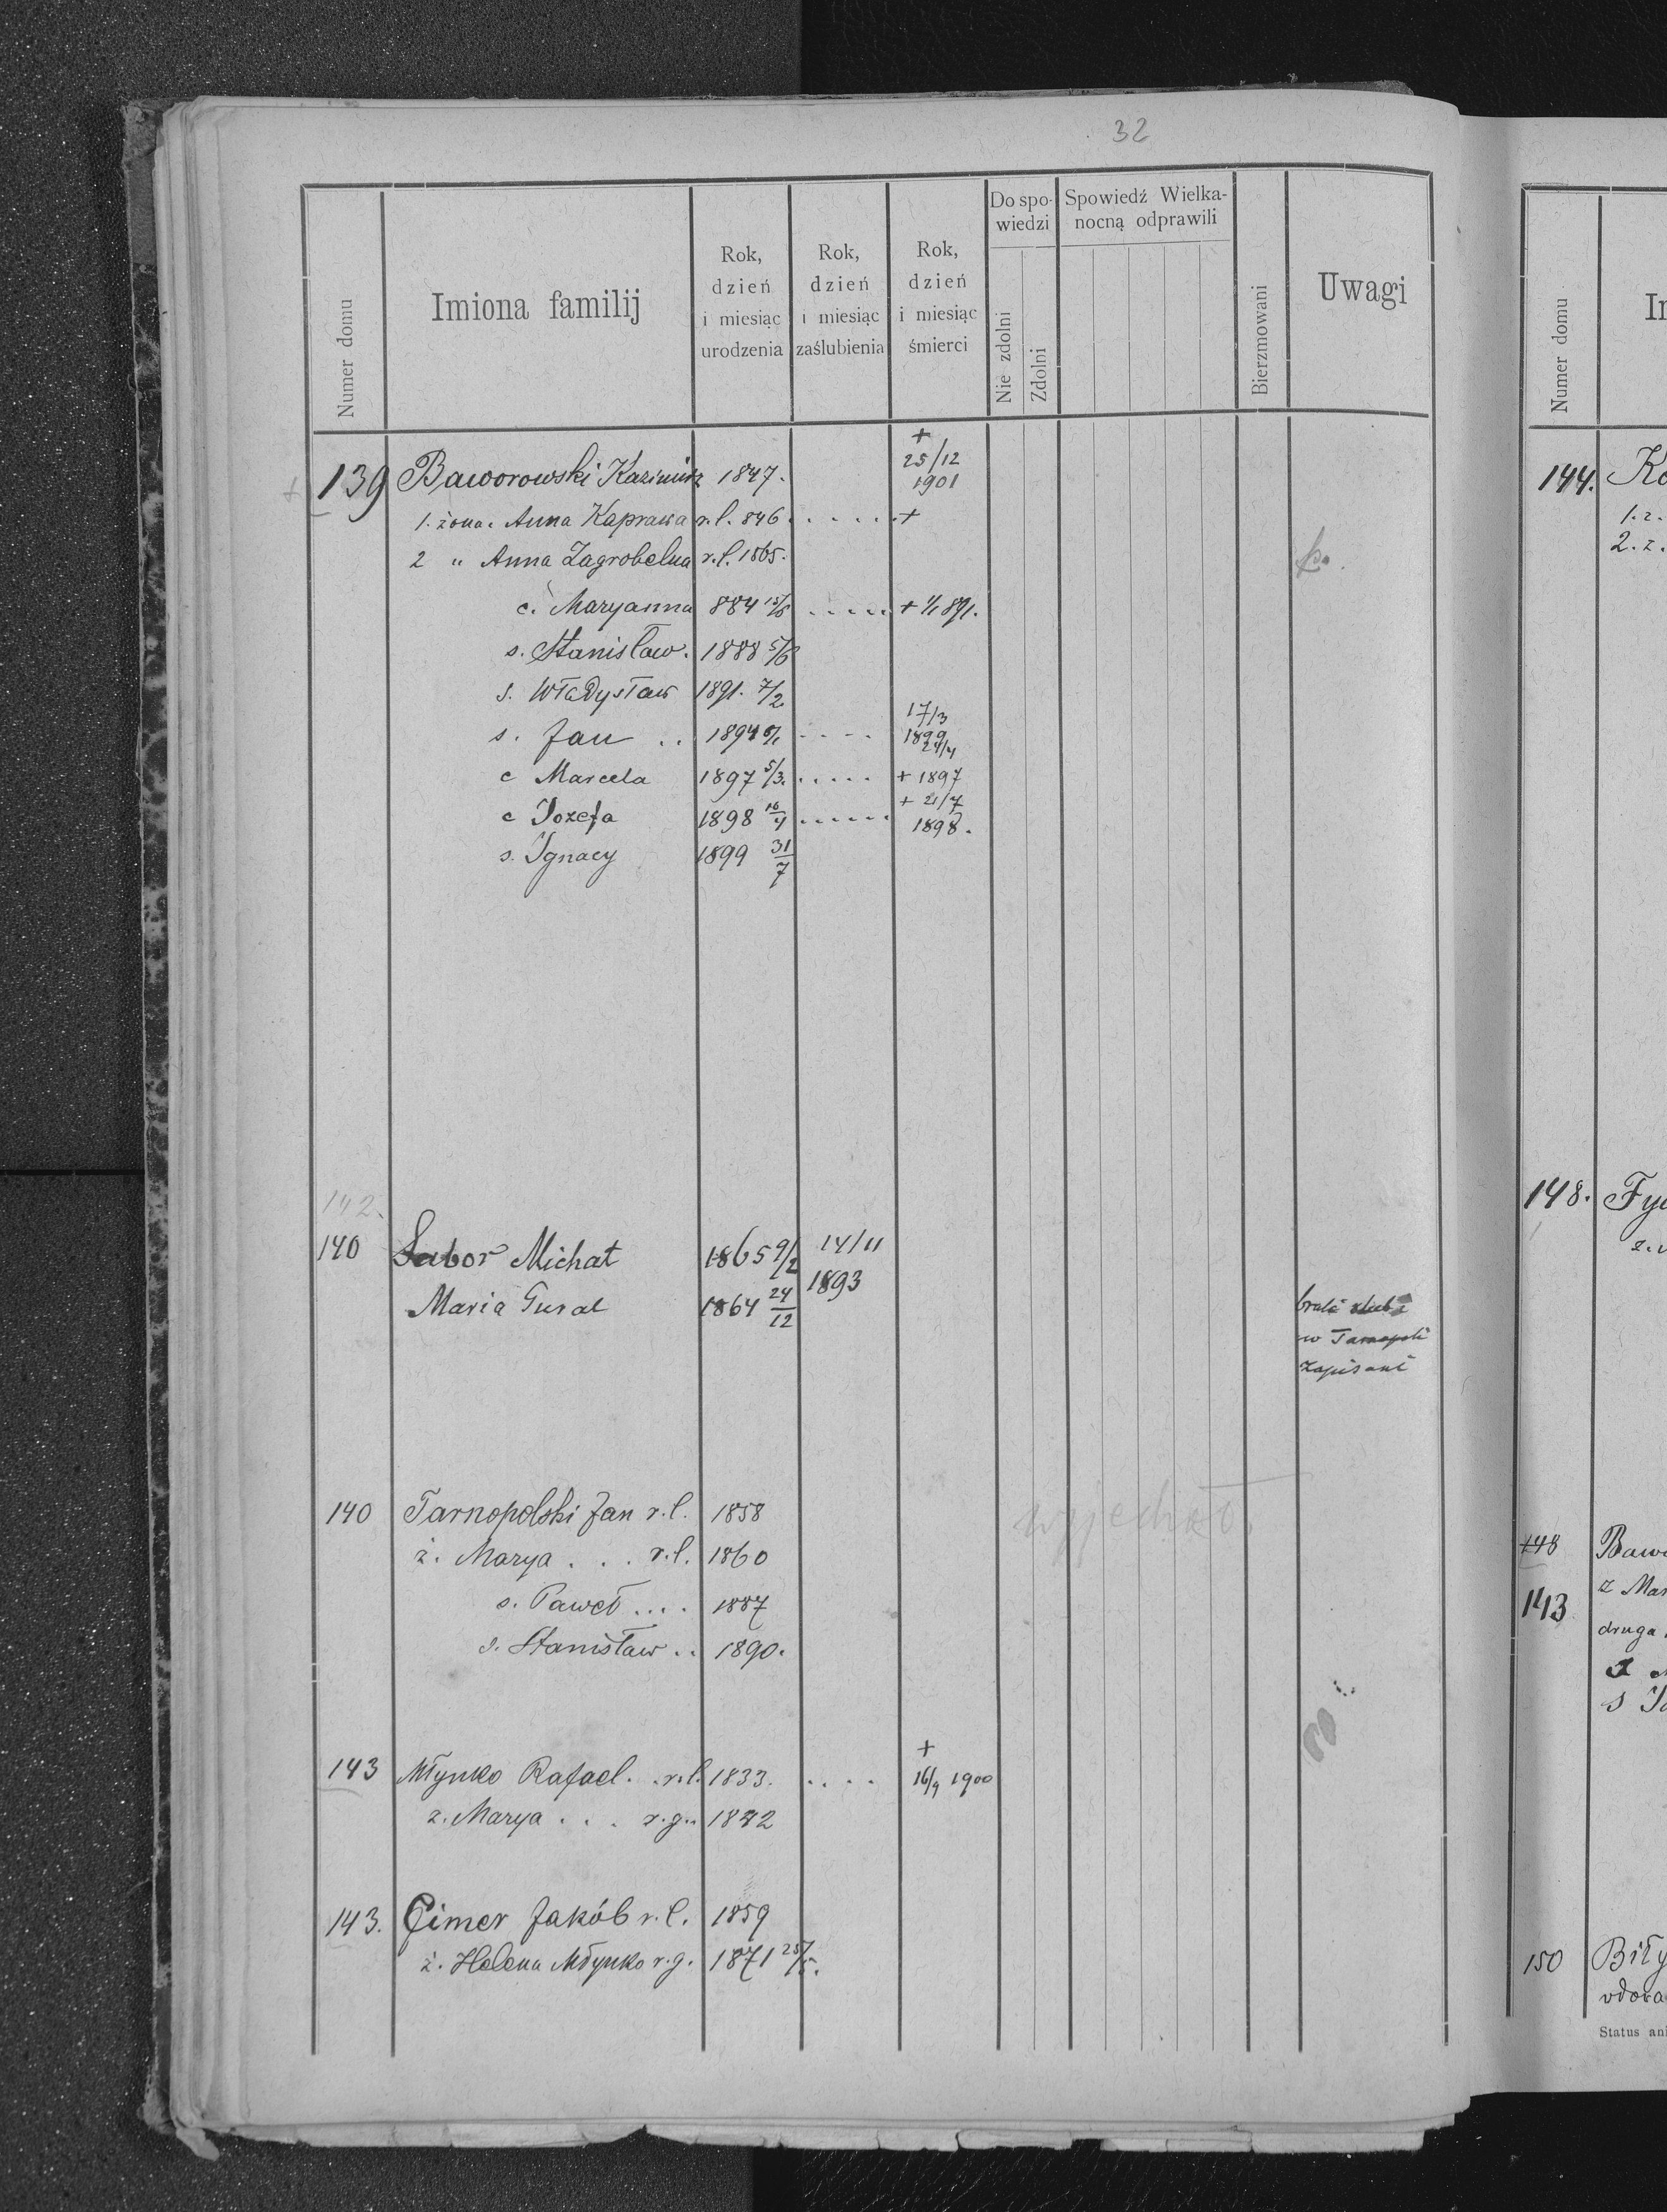 32
Numer domu
Imiona familij
Rok, dzień i miesiąc urodzenia
Rok, dzień i miesiąc zaślubienia
Rok, dzień i miesiąc śmierci
Do spowiedzi
Nie zdolni
Zdolni
Spowiedź Wielkanocną odprawili
Bierzmowani
Uwagi
+ 139 Baworowski Kazimierz 1847. + 25/12 1901
1. żona. Anna Kaprawa r.l. 846 . . . . . . +
2 " Anna Zagrobelna r.l. 1865.
c. Maryanna 884 15/8 . . . . . + 1/1 891.
s. Stanisław. 1888 5/6
s. Władysław 1891. 7/2
s. Jan .. 1894 - - - - 17/3 1899
c Marcela 1897 5/3. . . . . . 24/4 + 1897
c Jozefa 1898 16/4 . . . . . . + 21/7 1898.
s. Ignacy 1899 31/7
142.
140 Sabor Michał 1865 9/2 14/11 1893
Maria Gural 1864 24/12
brali ślub
w
zapisani
140 Tarnopolski Jan r.l. 1858 wyjechał.
ż. Marya . . . r.l. 1860
s. Paweł .... 1887
s. Stanisław .. 1890.
143 Młynko Rafael. . r.l. 1833. . . . . + 16/9 1900
ż. Marya . . . r.g.. 1842
143. Cimer Jakób r.l. 1859
ż. Helena Młynko r.g. 1871 25/5.
Numer domu
144. Ko
1. ż.
2. ż.
148. Fy
148 Baw
143
z Mar
druga
150 Biły
wdowa
Status ani